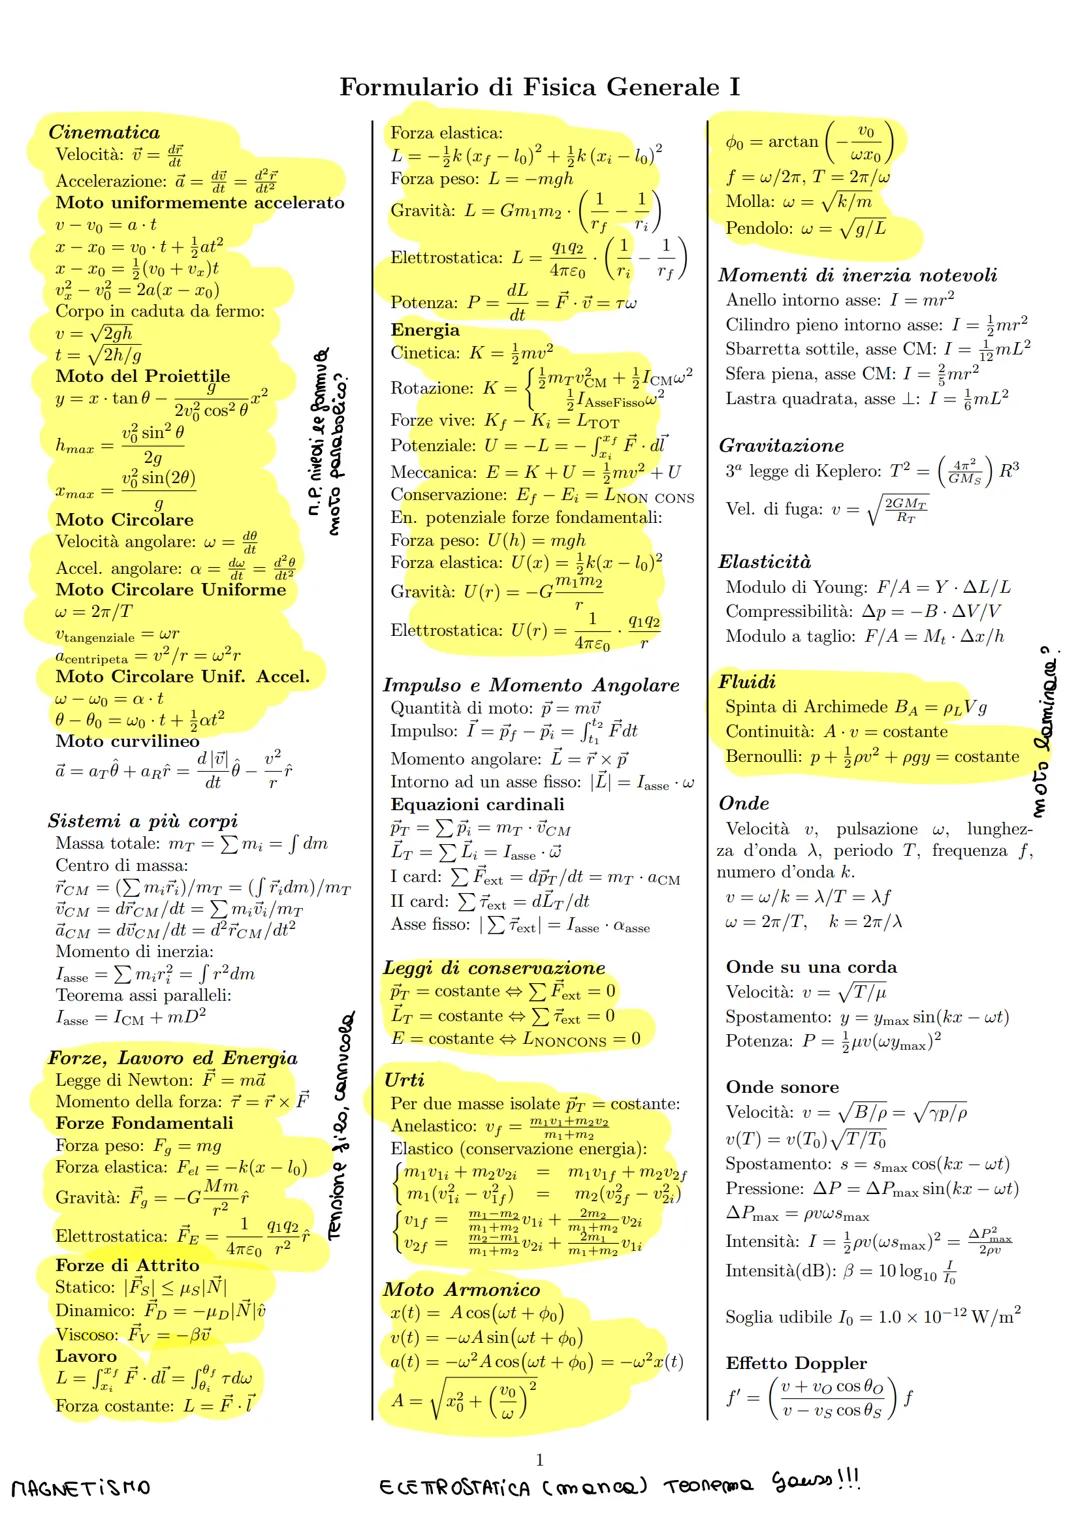 Formulario di Fisica Generale I
Cinematica
Velocità: v⃗ = dr⃗/dt
Accelerazione: a⃗ = dv⃗/dt = d²r⃗/dt²
Moto uniformemente accelerato
v − v₀ = a · t
x − x₀ = v₀ · t + ½at²
x − x₀ = ½(v₀ + vₓ)t
vₓ² − v₀² = 2a(x − x₀)
Corpo in caduta da fermo:
v = √(2gh)
t = √(2h/g)
Moto del Proiettile
y = x · tan θ − g/(2v₀² cos² θ) x²
h_max = v₀² sin² θ / 2g
x_max = v₀² sin(2θ) / g
Moto Circolare
Velocità angolare: ω = dθ/dt
Accel. angolare: α = dω/dt = d²θ/dt²
Moto Circolare Uniforme
ω = 2π/T
v_tangenziale = ωr
a_centripeta = v²/r = ω²r
Moto Circolare Unif. Accel.
ω − ω₀ = α · t
θ − θ₀ = ω₀ · t + ½αt²
Moto curvilineo
a⃗ = a_T θ̂ + a_R r̂ = d|v⃗|/dt θ̂ − v²/r r̂
Sistemi a più corpi
Massa totale: m_T = ∑ m_i = ∫ dm
Centro di massa:
r⃗_CM = (∑ m_i r⃗_i)/m_T = (∫ r⃗_i dm)/m_T
v⃗_CM = dr⃗_CM/dt = ∑ m_i v⃗_i/m_T
a⃗_CM = dv⃗_CM/dt = d²r⃗_CM/dt²
Momento di inerzia:
I_asse = ∑ m_i r_i² = ∫ r²dm
Teorema assi paralleli:
I_asse = I_CM + mD²
Forze, Lavoro ed Energia
Legge di Newton: F⃗ = ma⃗
Momento della forza: τ⃗ = r⃗ × F⃗
Forze Fondamentali
Forza peso: F_g = mg
Forza elastica: F_el = −k(x − l₀)
Gravità: F⃗_g = −G Mm/r² r̂
Elettrostatica: F⃗_E = 1/(4πε₀) q₁q₂/r² r̂
Forze di Attrito
Statico: |F⃗_S| ≤ μ_S|N⃗|
Dinamico: F⃗_D = −μ_D|N⃗|v̂
Viscoso: F⃗_V = −βv⃗
Lavoro
L = ∫_{x_i}^{x_f} F⃗ · dl⃗ = ∫_{θ_i}^{θ_f} τdω
Forza costante: L = F⃗ · l⃗
n.p. rivedi le formule
moto parabolico?
Tensione filo, carrucola
Forza elastica:
L = −½k (x_f − l₀)² + ½k (x_i − l₀)²
Forza peso: L = −mgh
Gravità: L = Gm₁m₂ · (1/r_f − 1/r_i)
Elettrostatica: L = q₁q₂/(4πε₀) · (1/r_i − 1/r_f)
Potenza: P = dL/dt = F⃗ · v⃗ = τω
Energia
Cinetica: K = ½mv²
Rotazione: K = { ½m_T v²_CM + ½I_CM ω²
½I_AsseFisso ω²
Forze vive: K_f − K_i = L_TOT
Potenziale: U = −L = − ∫_{x_i}^{x_f} F⃗ · dl⃗
Meccanica: E = K + U = ½mv² + U
Conservazione: E_f − E_i = L_NON CONS
En. potenziale forze fondamentali:
Forza peso: U(h) = mgh
Forza elastica: U(x) = ½k(x − l₀)²
Gravità: U(r) = −G m₁m₂/r
Elettrostatica: U(r) = 1/(4πε₀) · q₁q₂/r
Impulso e Momento Angolare
Quantità di moto: p⃗ = mv⃗
Impulso: I⃗ = p⃗_f − p⃗_i = ∫_{t₁}^{t₂} F⃗dt
Momento angolare: L⃗ = r⃗ × p⃗
Intorno ad un asse fisso: |L⃗| = I_asse · ω
Equazioni cardinali
p⃗_T = ∑ p⃗_i = m_T · v⃗_CM
L⃗_T = ∑ L⃗_i = I_asse · ω⃗
I card: ∑ F⃗_ext = dp⃗_T/dt = m_T · a_CM
II card: ∑ τ⃗_ext = dL⃗_T/dt
Asse fisso: |∑ τ⃗_ext| = I_asse · α_asse
Leggi di conservazione
p⃗_T = costante ⇔ ∑ F⃗_ext = 0
L⃗_T = costante ⇔ ∑ τ⃗_ext = 0
E = costante ⇔ L_NONCONS = 0
Urti
Per due masse isolate p⃗_T = costante:
Anelastico: v_f = (m₁v₁+m₂v₂)/(m₁+m₂)
Elastico (conservazione energia):
{ m₁v₁ᵢ + m₂v₂ᵢ = m₁v₁f + m₂v₂f
m₁(v²₁ᵢ − v²₁f) = m₂(v²₂f − v²₂ᵢ)
{ v₁f = (m₁−m₂)/(m₁+m₂) v₁ᵢ + 2m₂/(m₁+m₂) v₂ᵢ
v₂f = (m₂−m₁)/(m₁+m₂) v₂ᵢ + 2m₁/(m₁+m₂) v₁ᵢ
Moto Armonico
x(t) = A cos(ωt + φ₀)
v(t) = −ωA sin(ωt + φ₀)
a(t) = −ω²A cos(ωt + φ₀) = −ω²x(t)
A = √(x₀² + (v₀/ω)²)
φ₀ = arctan (−v₀/(ωx₀))
f = ω/2π, T = 2π/ω
Molla: ω = √(k/m)
Pendolo: ω = √(g/L)
Momenti di inerzia notevoli
Anello intorno asse: I = mr²
Cilindro pieno intorno asse: I = ½mr²
Sbarretta sottile, asse CM: I = 1/12 mL²
Sfera piena, asse CM: I = 2/5 mr²
Lastra quadrata, asse ⊥: I = 1/6 mL²
Gravitazione
3ª legge di Keplero: T² = (4π²/GM_S) R³
Vel. di fuga: v = √(2GM_T/R_T)
Elasticità
Modulo di Young: F/A = Y · ΔL/L
Compressibilità: Δp = −B · ΔV/V
Modulo a taglio: F/A = M_t · Δx/h
Fluidi
Spinta di Archimede B_A = ρ_L V g
Continuità: A · v = costante
Bernoulli: p + ½ρv² + ρgy = costante
moto laminare?
Onde
Velocità v, pulsazione ω, lunghez-
za d'onda λ, periodo T, frequenza f,
numero d'onda k.
v = ω/k = λ/T = λf
ω = 2π/T, k = 2π/λ
Onde su una corda
Velocità: v = √(T/μ)
Spostamento: y = y_max sin(kx − ωt)
Potenza: P = ½μv(ωy_max)²
Onde sonore
Velocità: v = √(B/ρ) = √(γp/ρ)
v(T) = v(T₀)√(T/T₀)
Spostamento: s = s_max cos(kx − ωt)
Pressione: ΔP = ΔP_max sin(kx − ωt)
ΔP_max = ρvωs_max
Intensità: I = ½ρv(ωs_max)² = ΔP²_max/2ρv
Intensità(dB): β = 10 log₁₀ I/I₀
Soglia udibile I₀ = 1.0 × 10⁻¹² W/m²
Effetto Doppler
f′ = ((v + v_O cos θ_O)/(v − v_S cos θ_S)) f
1
MAGNETISMO
ELETTROSTATICA (manca) Teorema Gauss!!!